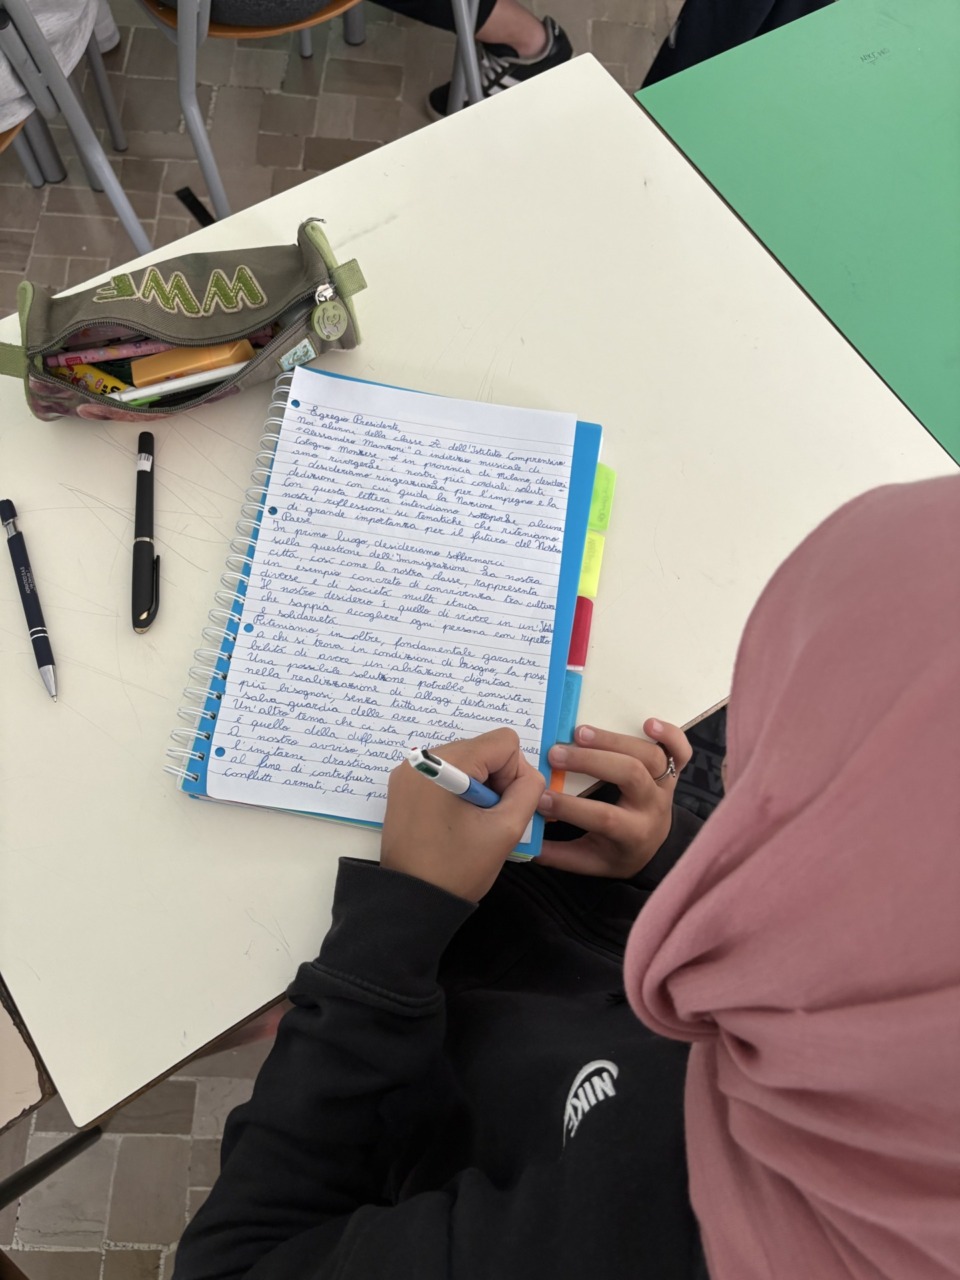 Egregio Presidente,
noi alunni della classe 2C dell'Istituto Comprensivo
"Alessandro Manzoni" a indirizzo musicale di
Cologno Monzese, in provincia di Milano, desideri=
amo rivolgerle i nostri più cordiali saluti
e desideriamo ringraziarla per l'impegno e la
dedizione con cui guida la Nazione.
Con questa lettera intendiamo sottoporle alcune
nostre riflessioni su tematiche che riteniamo
di grande importanza per il futuro del Nostro
Paese.
In primo luogo, desideriamo soffermarci
sulla questione dell'Immigrazione. La nostra
città, così come la nostra classe, rappresenta
un esempio concreto di convivenza tra culture
diverse e di società multi etnica.
Il nostro desiderio è quello di vivere in un'
che sappia accogliere ogni persona con rispetto
e solidarietà.
Riteniamo, in oltre, fondamentale garantire
a chi si trova in condizioni di bisogno, la possi
bilità di avere un'abitazione dignitosa.
Una possibile soluzione potrebbe consistere
nella realizzazione di alloggi destinati ai
più bisognosi, senza tuttavia trascurare la
salva guardia delle aree verdi.
Un'altro tema che ci sta particolar
è quello della diffusione
A nostro avviso, sarebbe
l'imitarne drasticame
al fine di contribuire
conflitti armati, che
WWF
NIKE